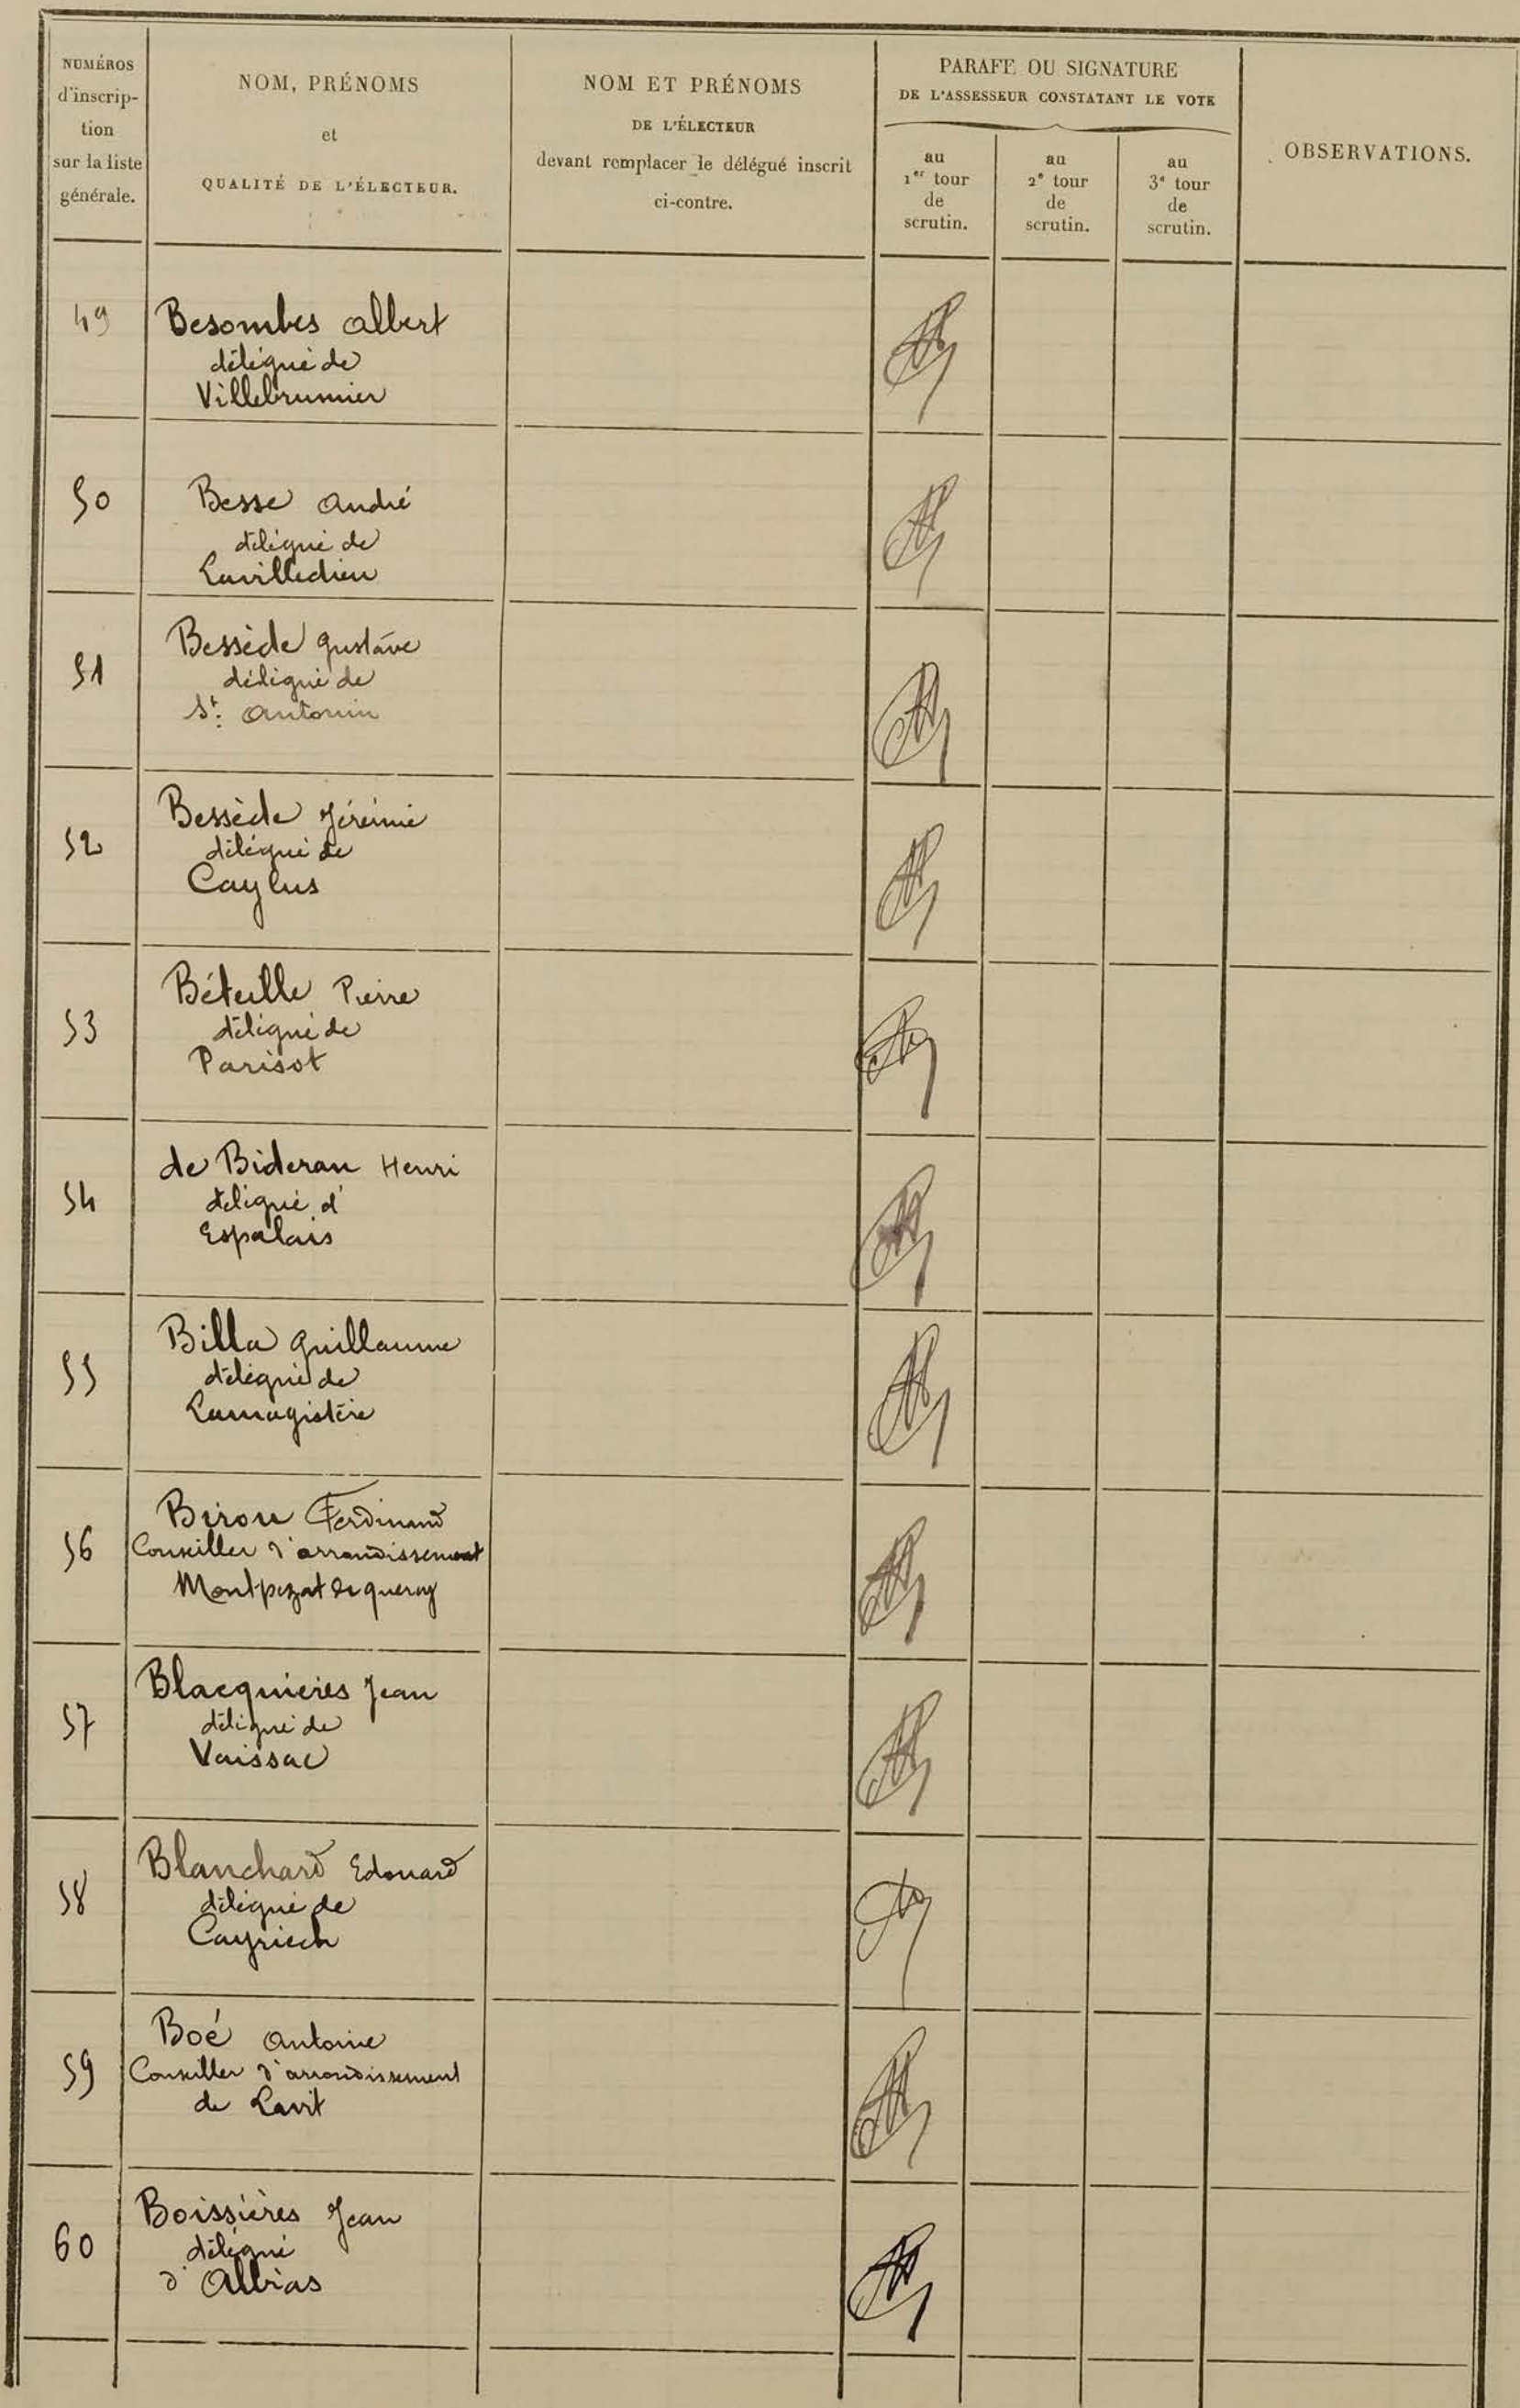 NUMÉROS
d'inscrip-
tion
sur la liste
générale.
NOM, PRÉNOMS
et
QUALITÉ DE L'ÉLECTEUR.
NOM ET PRÉNOMS
DE L'ÉLECTEUR
devant remplacer le délégué inscrit
ci-contre.
PARAFE OU SIGNATURE
DE L'ASSESSEUR CONSTATANT LE VOTE
au
1er tour
de
scrutin.
au
2e tour
de
scrutin.
au
3e tour
de
scrutin.
OBSERVATIONS.
49
Besombes Albert
délégué de
Villebrumier
50
Besse André
délégué de
Lavilledieu
51
Bessède Gustave
délégué de
St. Antonin
52
Bessède Jérémie
délégué de
Caylus
53
Béteille Pierre
délégué de
Parisot
54
de Bideran Henri
délégué d'
Espalais
55
Billa Guillaume
délégué de
Lamagistère
56
Birou Ferdinand
Conseiller d'arrondissement
Montpezat de quercy
57
Blacquières Jean
délégué de
Vaissac
58
Blanchard Edouard
délégué de
Cayriech
59
Boé Antoine
Conseiller d'arrondissement
de Lavit
60
Boissières Jean
délégué
d'Albias